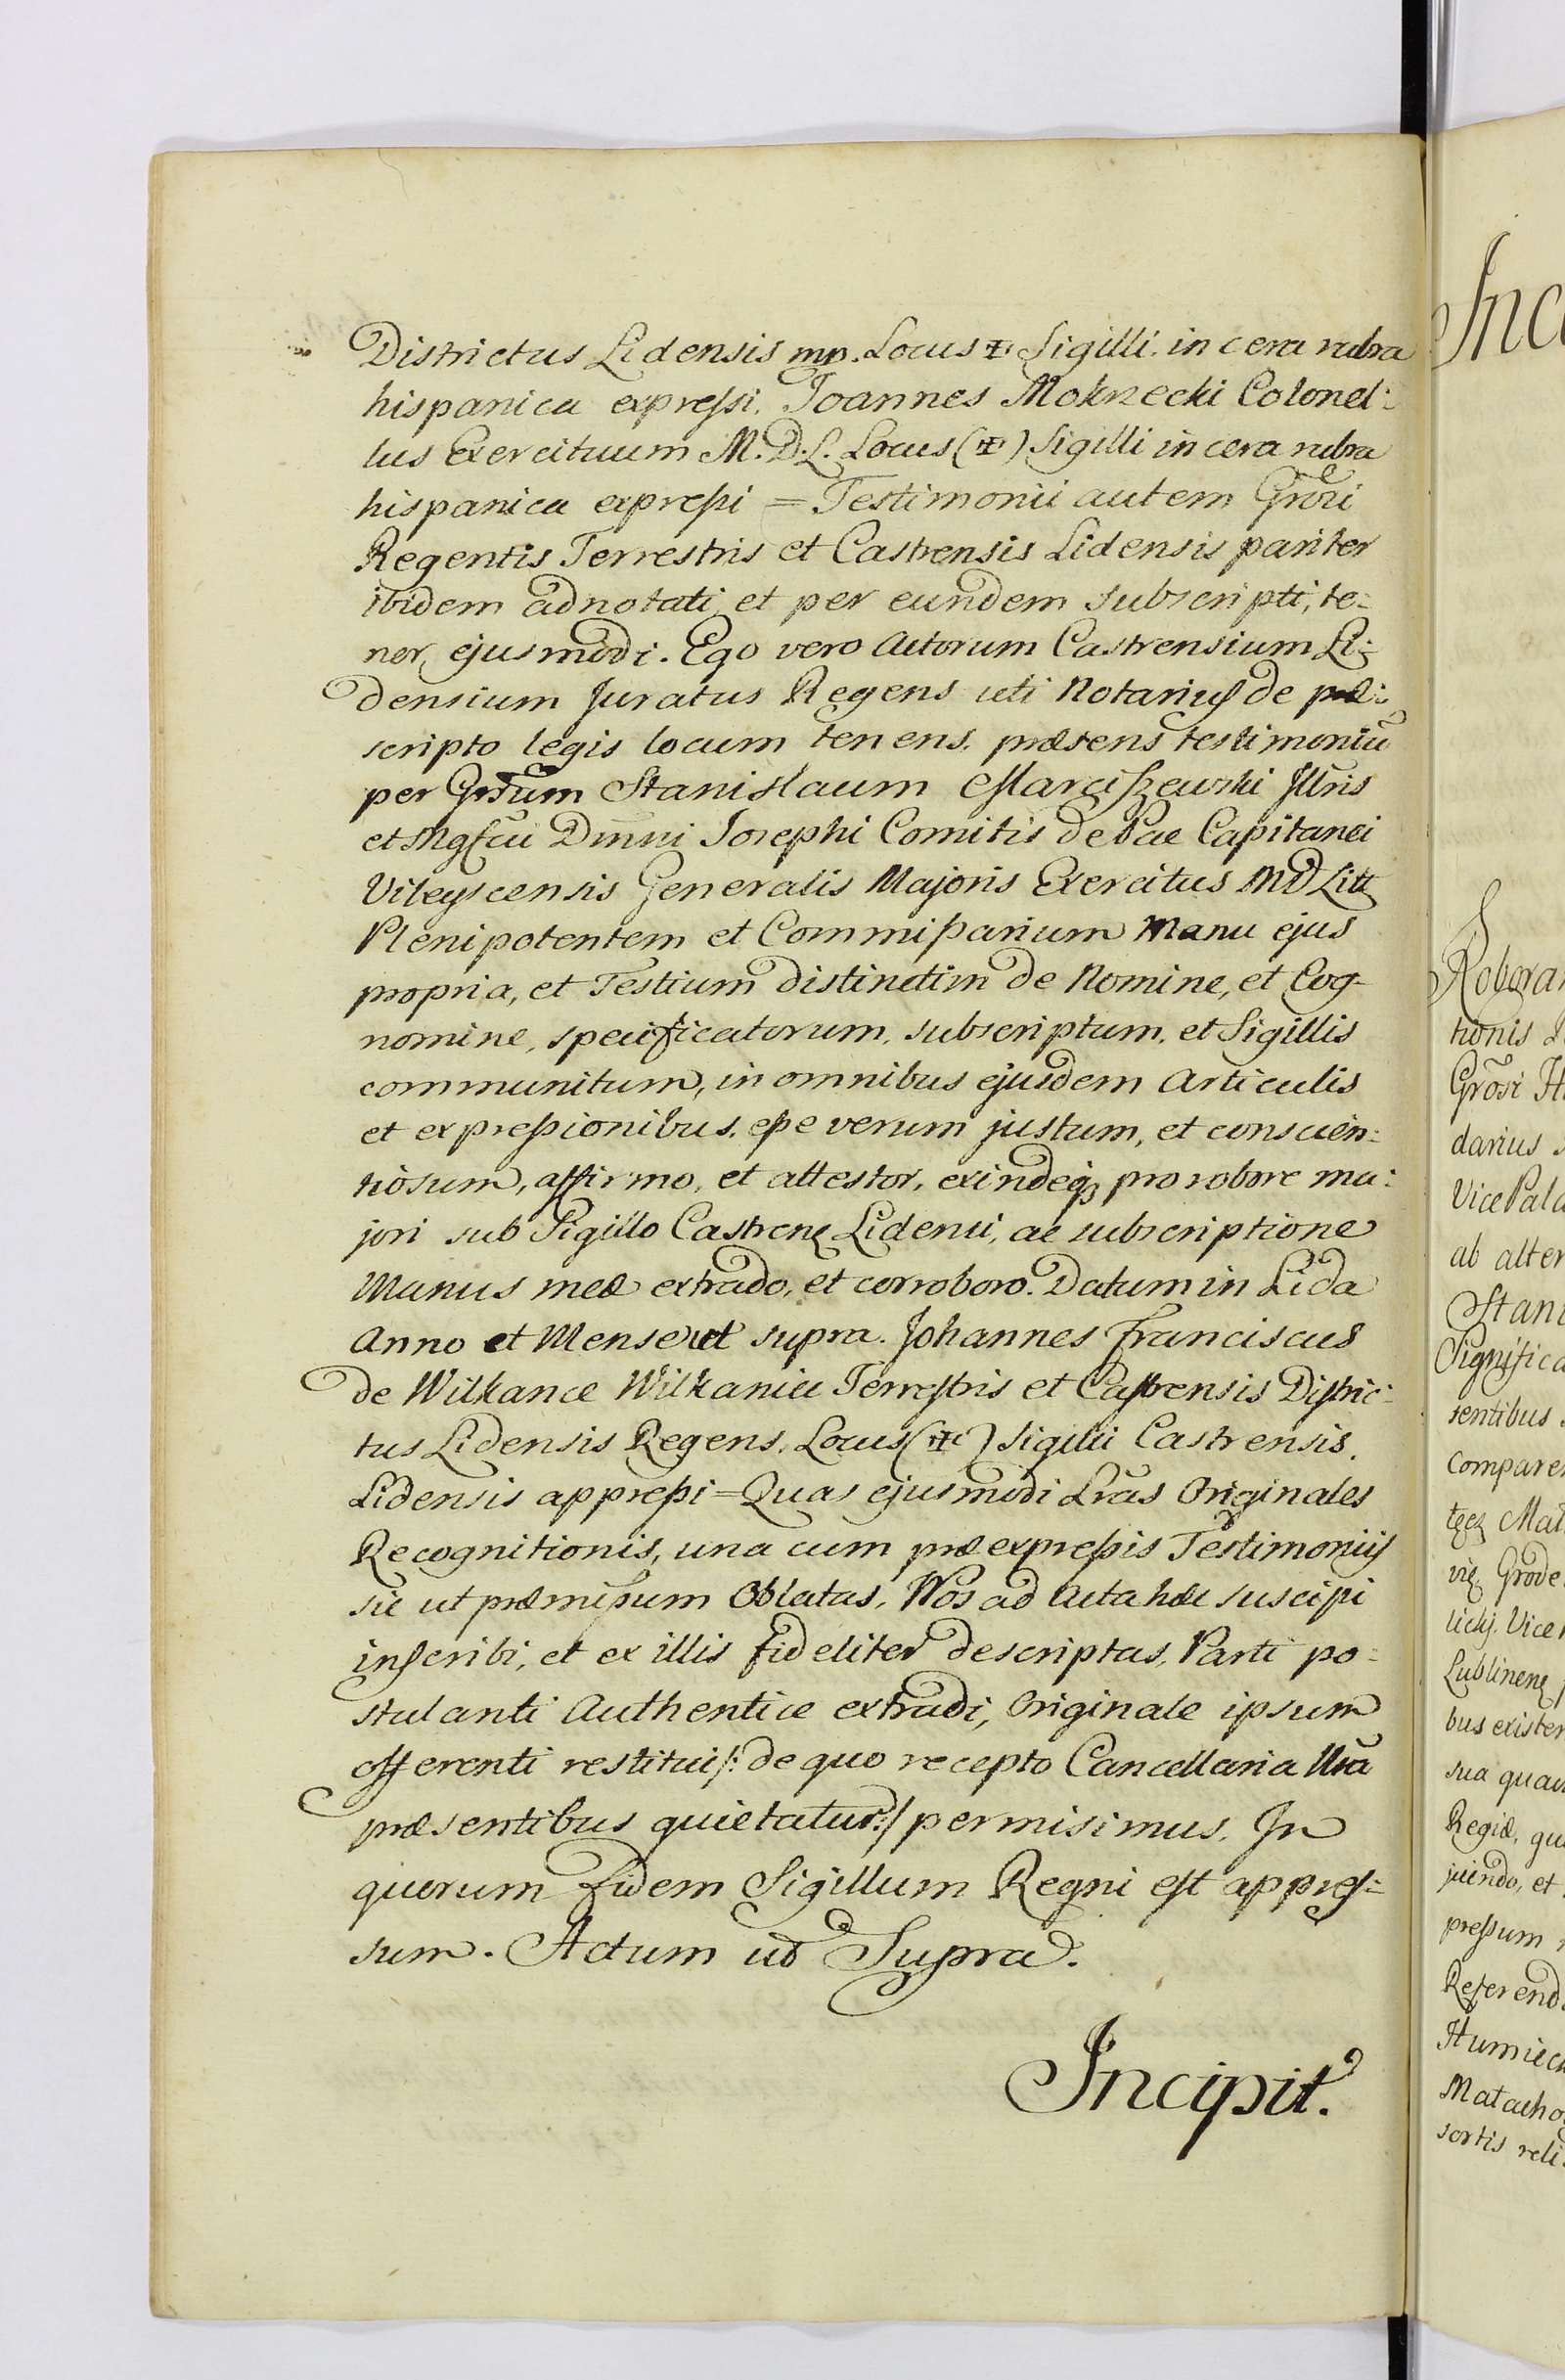 Districtus Lidensis mp. Locus ✠ Sigilli in cera rubra
hispanica expressi. Joannes Mokrzecki Colonel:
lus Exercituum M.D.L. Locus (✠) Sigilli in cera rubra
hispanica expressi = Testimonii autem Grōsi
Regentis Terrestris et Castrensis Lidensis pariter
ibidem adnotati, et per eundem subscripti, te:
nor, ejusmodi. Ego vero Actorum Castrensium Li:
densium Juratus Regens uti Notarius de præ:
scripto legis locum tenens, præsens testimoniū
per Grōsum Stanislaum Marciszewski Illūris
et Mgfcū Dmni Josephi Comitis de Pac Capitanei
Vileyscensis Generalis Majoris Exercitus MD Litt
Plenipotentem et Commissarium Manu ejus
propria, et Testium distinctim de Nomine, et Cog-
nomine, specificatorum, subscriptum, et Sigillis
communitum, in omnibus ejusdem Articulis
et expressionibus, esse verum justum, et conscien:
tiosum, affirmo, et attestor, exindeq, pro robore ma:
jori sub Sigillo Castrenę Lidensi, ac subscriptione
Manus meæ extrado, et corroboro. Datum in Lida
Anno et Mense ut supra. Johannes Franciscus
de Wilkance Wilkaniec Terrestris et Castrensis Distric:
tus Lidensis Regens, Locus (✠) Sigilli Castrensis
Lidensis appressi = Quas ejusmodi Lr̄as Originales
Recognitionis, una cum præexpressis Testimoniis
sic ut præmissum Oblatas, Nos ad Acta hæc suscipi
inscribi, et ex illis fideliter descriptas, Parti po:
stulanti Authentice extradi, Originale ipsum
offerenti restitui /: de quo recepto Cancellaria Nr̄a
præsentibus quietatur :/ permisimus. In
quorum Fidem Sigillum Regni est appres:
sum. Actum ut Supra.
Incipit.
Roborar
tionis
Grōsi
darius
Vice Pala
ab alter
Stani
Significa
sentibus
Compare
vię Grode
Vice
Lublinenę
bus exister
sua quam
Regiæ, qu
juendo, et
pressum
Referend
Humieck
sortis reli